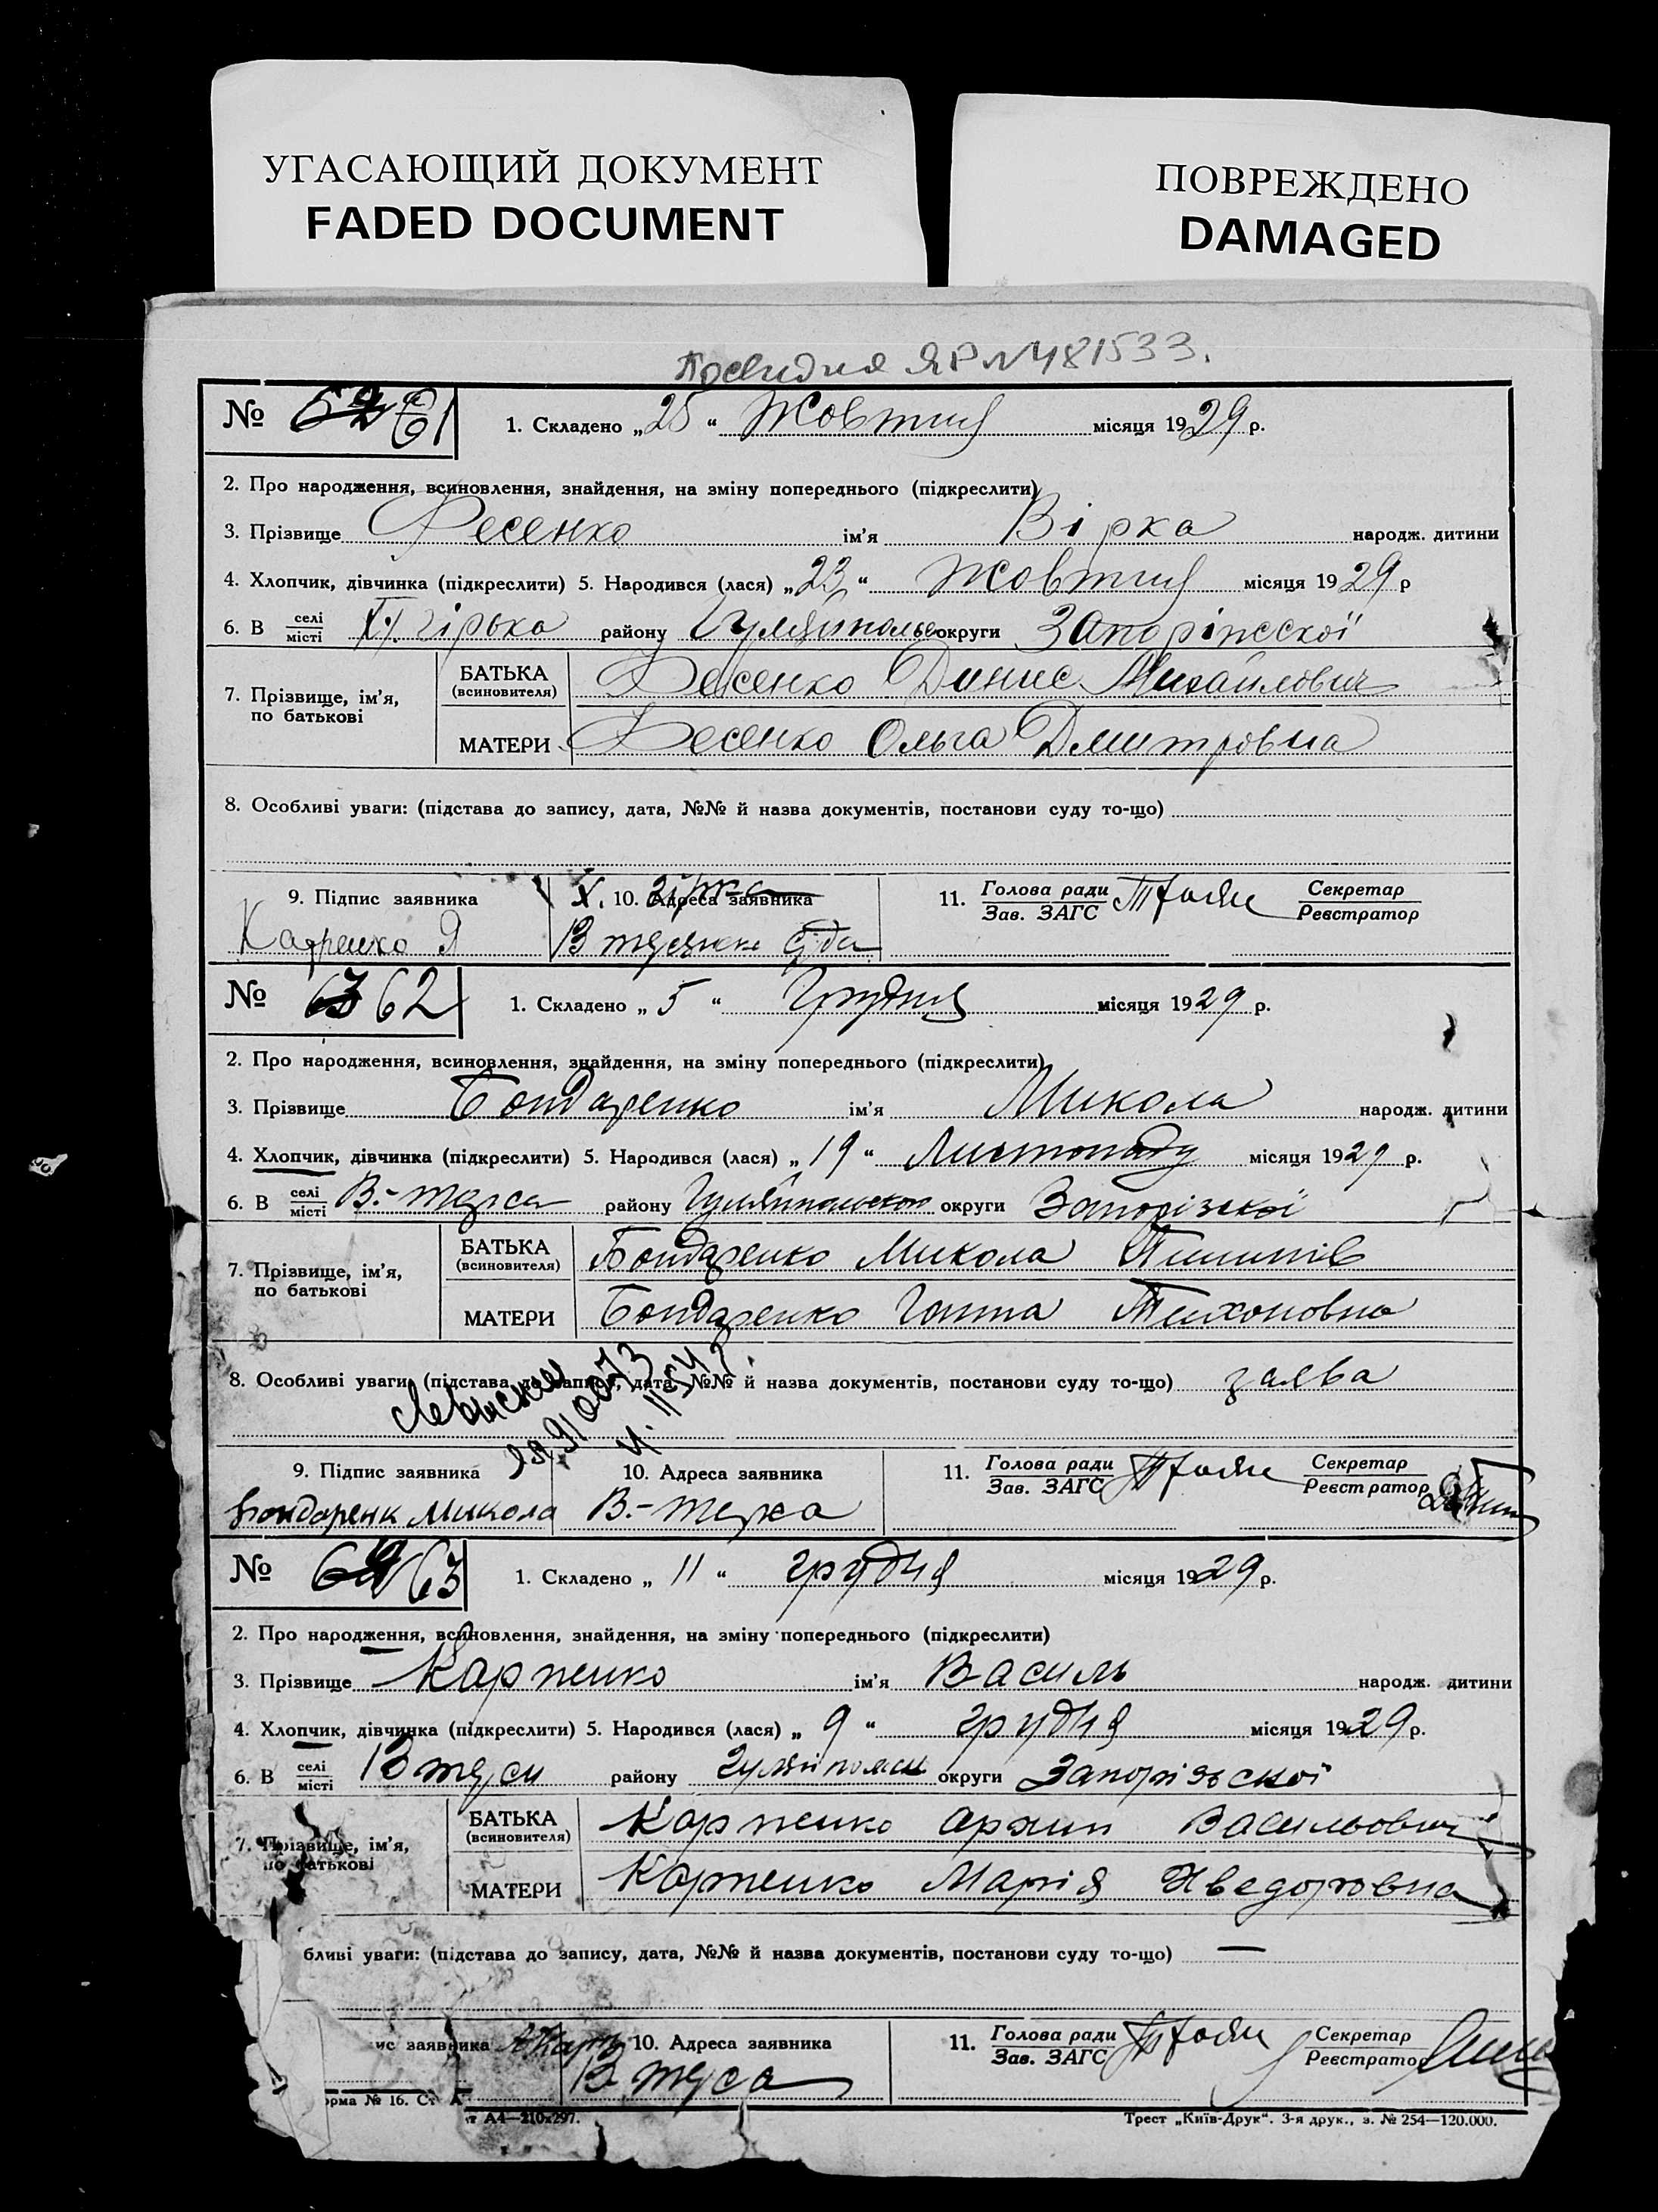 УГАСАЮЩИЙ ДОКУМЕНТ
FADED DOCUMENT
ПОВРЕЖДЕНО
DAMAGED
ЯР №481533.
№ 62 61 1. Складено „25“ Жовтня місяця 1929 р.
2. Про народження, всиновлення, знайдення, на зміну попереднього (підкреслити)
3. Прізвище Фесенко ім'я Вірка народж. дитини
4. Хлопчик, дівчинка (підкреслити) 5. Народився (лася) „23“ Жовтня місяця 1929 р
6. В селі місті Х. Гірька району округи
7. Прізвище, ім'я, по батькові
БАТЬКА (всиновителя) Фесенко Динис Михайлович
МАТЕРИ Фесенко Ольга Дмитровна
8. Особливі уваги: (підстава до запису, дата, №№ й назва документів, постанови суду то-що)
9. Підпис заявника Х. 10. Адреса заявника 11. Голова ради Зав. ЗАГС Секретар Реєстратор
№ 63 62 1. Складено „5“ Грудня місяця 1929 р.
2. Про народження, всиновлення, знайдення, на зміну попереднього (підкреслити)
3. Прізвище Бондаренко ім'я Микола народж. дитини
4. Хлопчик, дівчинка (підкреслити) 5. Народився (лася) „19“ Листопаду місяця 1929 р.
6. В селі місті В.-терса району округи Запорізької
7. Прізвище, ім'я, по батькові
БАТЬКА (всиновителя) Бондаренко Микола Пилипів
МАТЕРИ Бондаренко Ганна Тихоновна
8. Особливі уваги (підстава до запису, дата, №№ й назва документів, постанови суду то-що) заява
9. Підпис заявника 10. Адреса заявника 11. Голова ради Зав. ЗАГС Секретар Реєстратор
Бондаренк Микола В.-терса
№ 64 63 1. Складено „11“ грудня місяця 1929 р.
2. Про народження, всиновлення, знайдення, на зміну попереднього (підкреслити)
3. Прізвище Карпенко ім'я Василь народж. дитини
4. Хлопчик, дівчинка (підкреслити) 5. Народився (лася) „9“ грудня місяця 1929 р.
6. В селі місті В терси району округи Запорізької
7. Прізвище, ім'я, по батькові
БАТЬКА (всиновителя) Карпенко Архип Васильович
МАТЕРИ Карпенко Марія Хведоровна
бливі уваги: (підстава до запису, дата, №№ й назва документів, постанови суду то-що) —
ис заявника 10. Адреса заявника 11. Голова ради Зав. ЗАГС Секретар Реєстратор
В. терса
орма № 16. Ст А
т А4—210х297.
Трест „Київ-Друк“. 3-я друк., з. № 254—120.000.